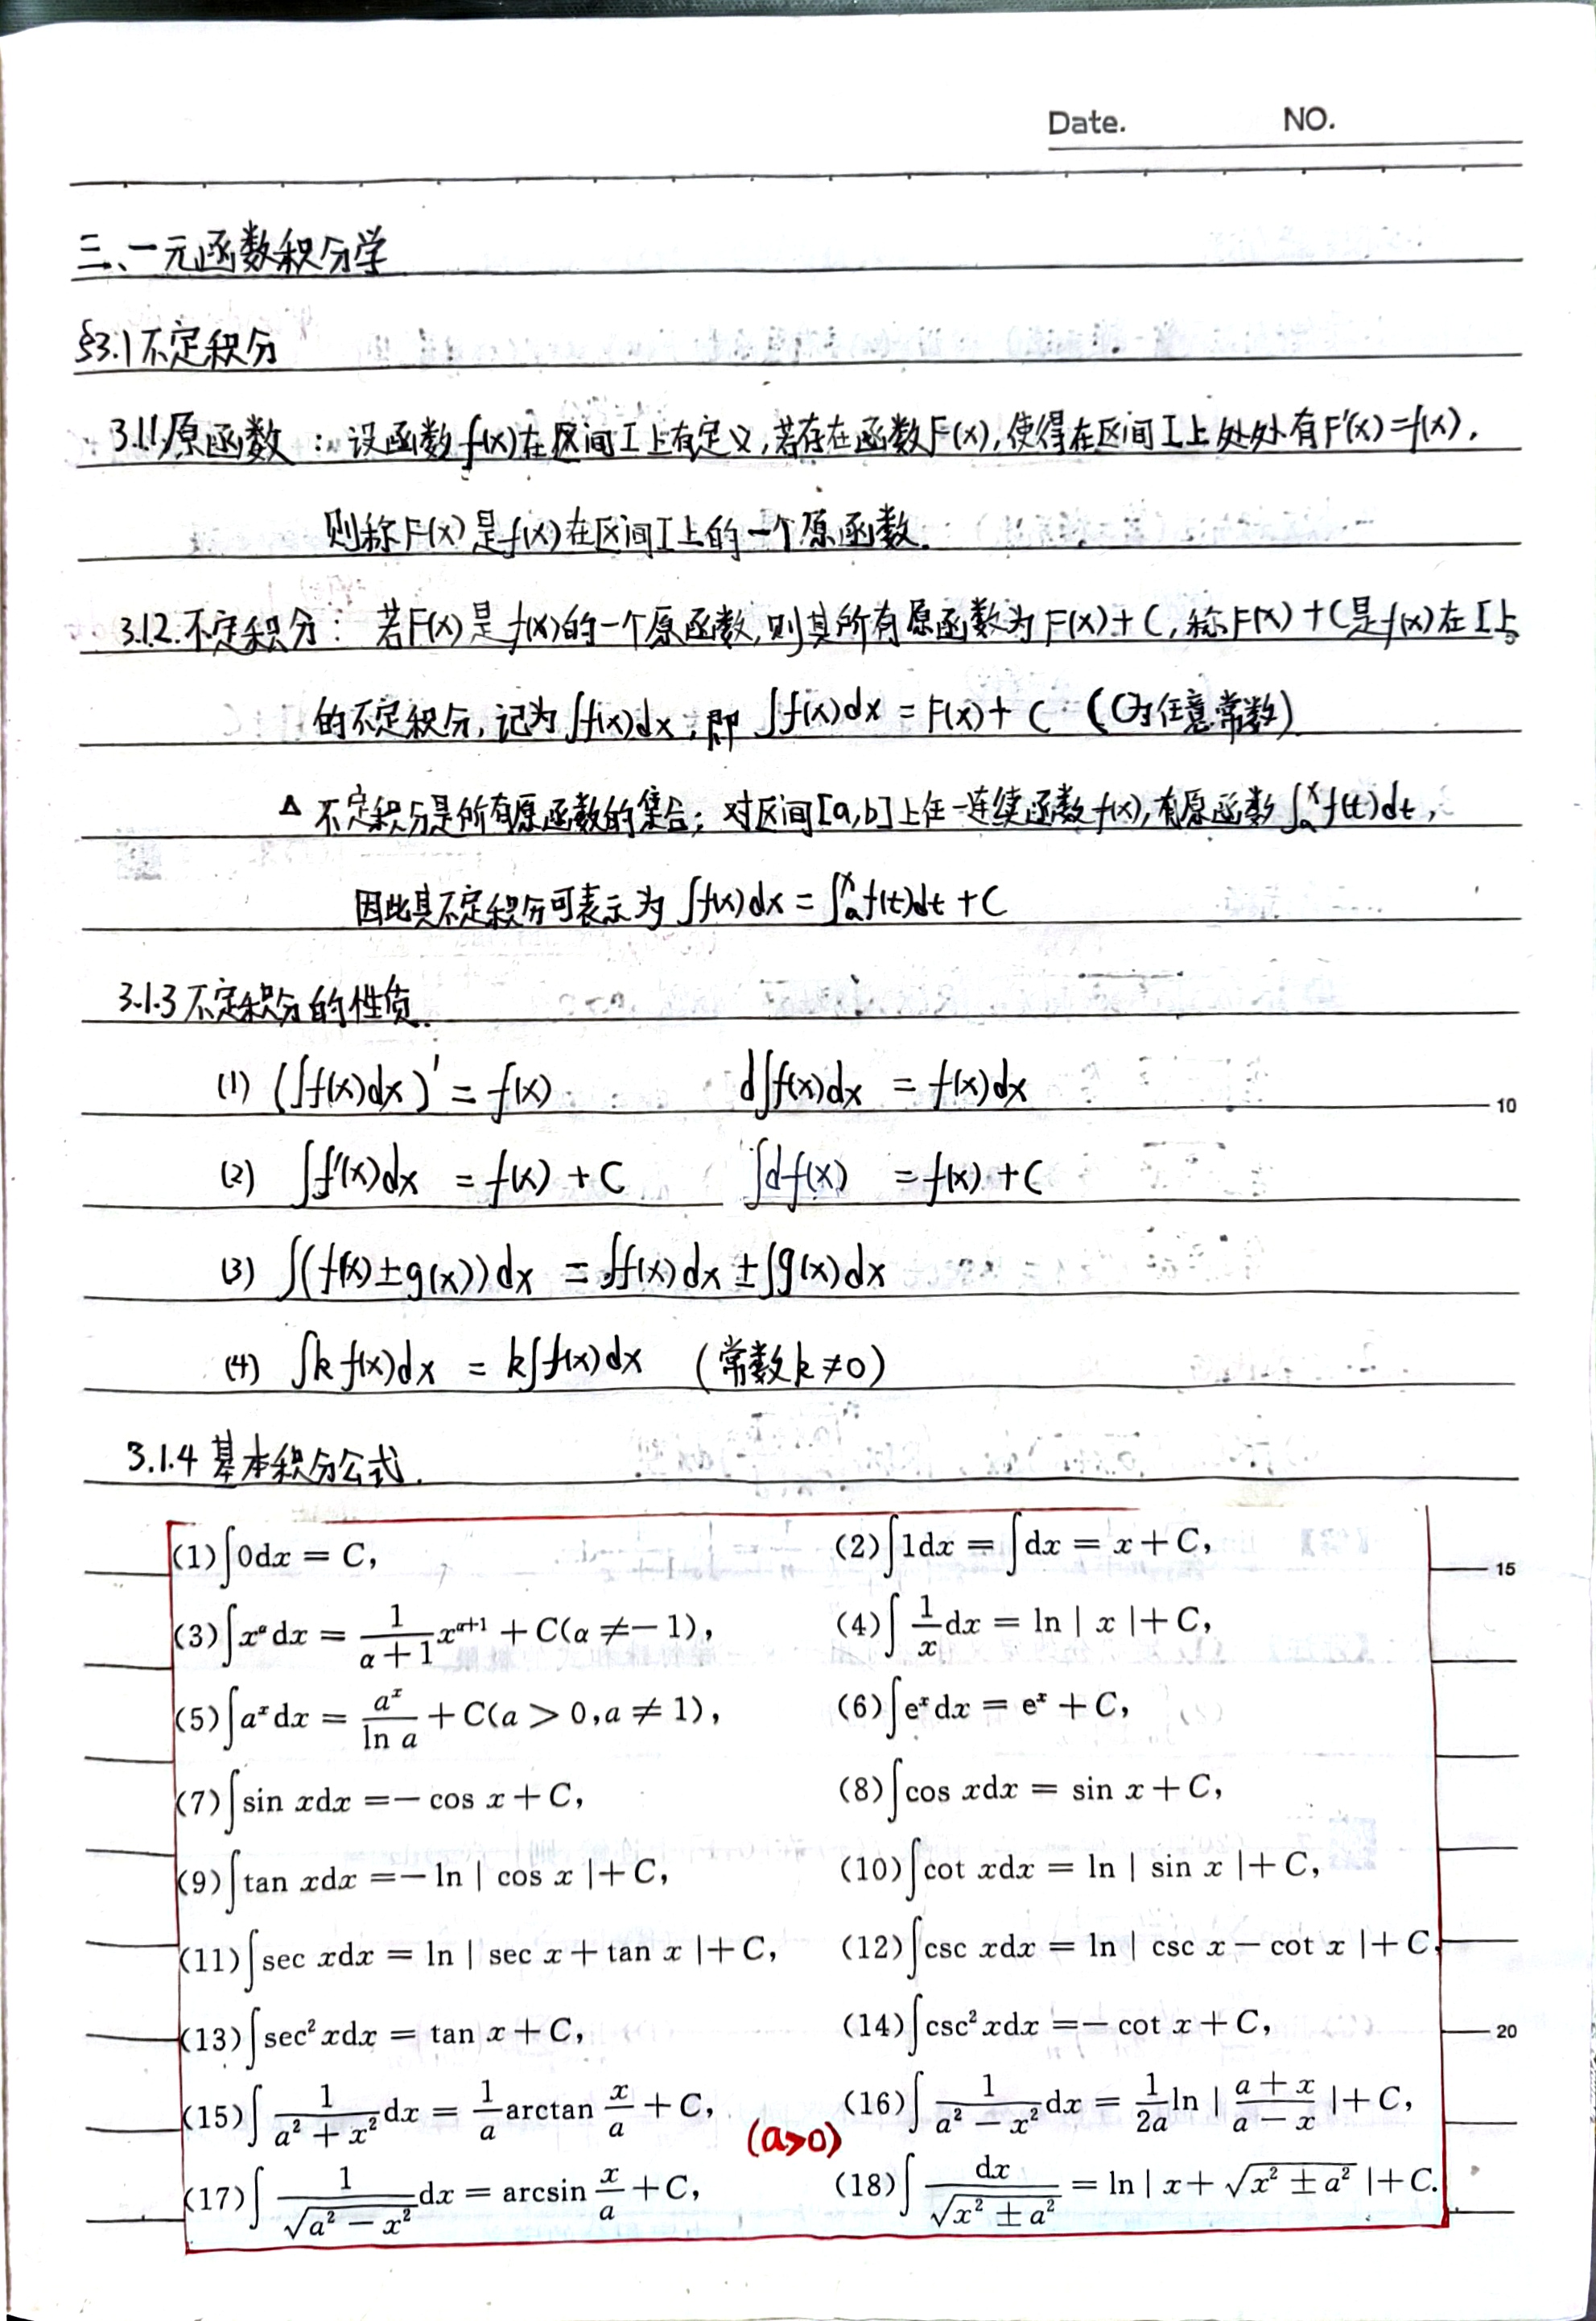 Date. NO.
三、一元函数积分学
§3.1 不定积分
3.1.1.原函数：设函数f(x)在区间I上有定义,若存在函数F(x),使得在区间I上处处有F'(x)=f(x),
则称F(x)是f(x)在区间I上的一个原函数.
3.1.2.不定积分：若F(x)是f(x)的一个原函数,则其所有原函数为F(x)+C,称F(x)+C是f(x)在I上
的不定积分,记为∫f(x)dx,即 ∫f(x)dx = F(x)+C (C为任意常数)
△ 不定积分是所有原函数的集合；对区间[a,b]上任一连续函数f(x),有原函数∫ₐˣf(t)dt,
因此其不定积分可表示为 ∫f(x)dx = ∫ₐˣf(t)dt+C
3.1.3 不定积分的性质.
(1) (∫f(x)dx)' = f(x) d∫f(x)dx = f(x)dx
(2) ∫f'(x)dx = f(x)+C ∫df(x) = f(x)+C
(3) ∫(f(x)±g(x))dx = ∫f(x)dx±∫g(x)dx
(4) ∫kf(x)dx = k∫f(x)dx (常数k≠0)
3.1.4 基本积分公式.
(1)∫0dx = C, (2)∫1dx = ∫dx = x+C, 15
(3)∫x^α dx = 1/(α+1) x^(α+1) + C(α≠−1), (4)∫1/x dx = ln|x|+C,
(5)∫a^x dx = a^x/ln a + C(a>0,a≠1), (6)∫e^x dx = e^x + C,
(7)∫sin xdx =−cos x+C, (8)∫cos xdx = sin x+C,
(9)∫tan xdx =−ln|cos x|+C, (10)∫cot xdx = ln|sin x|+C,
(11)∫sec xdx = ln|sec x+tan x|+C, (12)∫csc xdx = ln|csc x−cot x|+C,
(13)∫sec² xdx = tan x+C, (14)∫csc² xdx =−cot x+C, 20
(15)∫1/(a²+x²) dx = 1/a arctan x/a + C, (16)∫1/(a²−x²) dx = 1/2a ln|(a+x)/(a−x)|+C,
(a>0)
(17)∫1/√(a²−x²) dx = arcsin x/a +C, (18)∫dx/√(x²±a²) = ln|x+√(x²±a²)|+C.
10